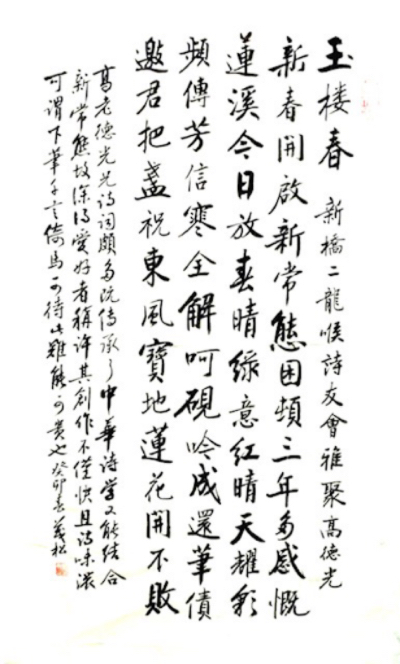 玉楼春 新橋二龍喉詩友會雅聚高德光
新春開啟新常態困頓三年多感慨
蓮溪今日放春晴綠意紅晴天耀彩
頻傳芳信寒全解呵硯吟成還筆債
邀君把盞祝東風寶地蓮花開不敗
高老德光兄詩詞頗多既傳承了中華詩學又能结合
新常態故深得愛好者稱许其創作不僅快且詩味濃
可謂下筆千言倚馬可待此難能可貴也癸卯春義松